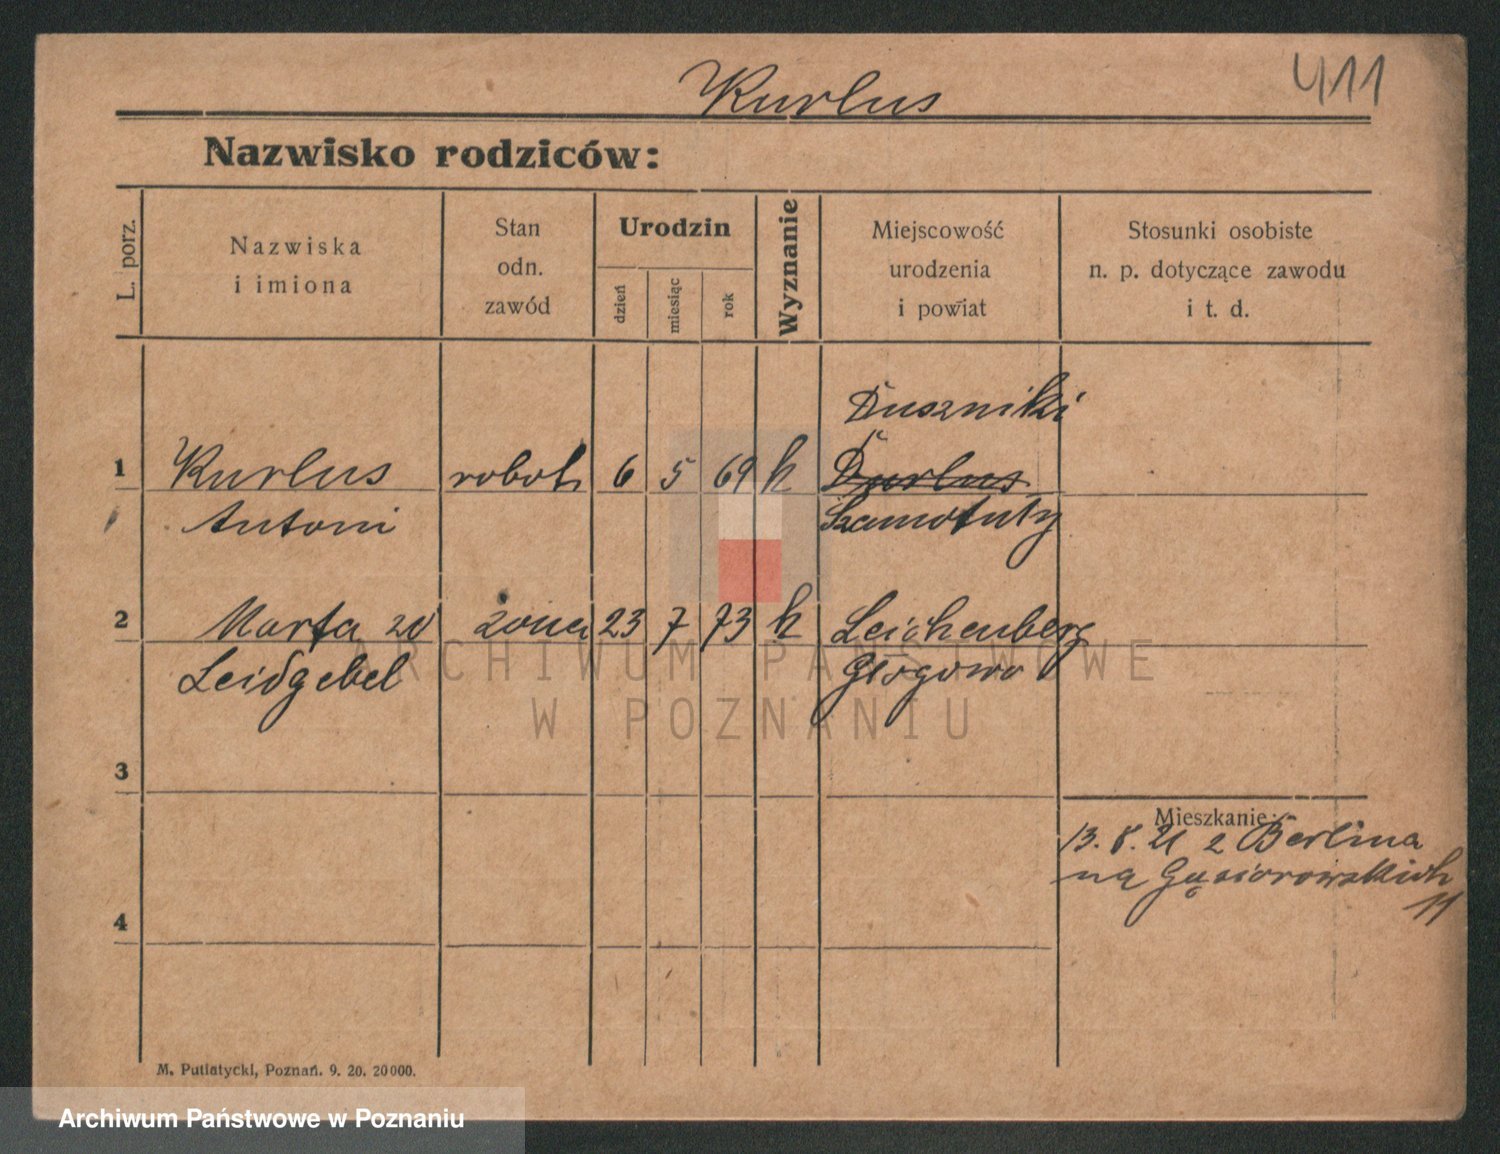 Kurlus
411
Nazwisko rodziców:
L. porz.
Nazwiska
i imiona
Stan
odn.
zawód
Urodzin
dzień
miesiąc
rok
Wyznanie
Miejscowość
urodzenia
i powiat
Stosunki osobiste
n. p. dotyczące zawodu
i t. d.
Duszniki
1 Kurlus robot 6 5 69 k Durlus
Antoni Szamotuły
2 Marta zd żona 23 7 73 k Leichenberg
Leidgebel Głogowo
3
Mieszkanie:
13. 8. 21 z Berlina
na Gąsiorowskich
11
4
M. Putiatycki, Poznań. 9. 20. 20000.
ARCHIWUM PAŃSTWOWE
W POZNANIU
Archiwum Państwowe w Poznaniu